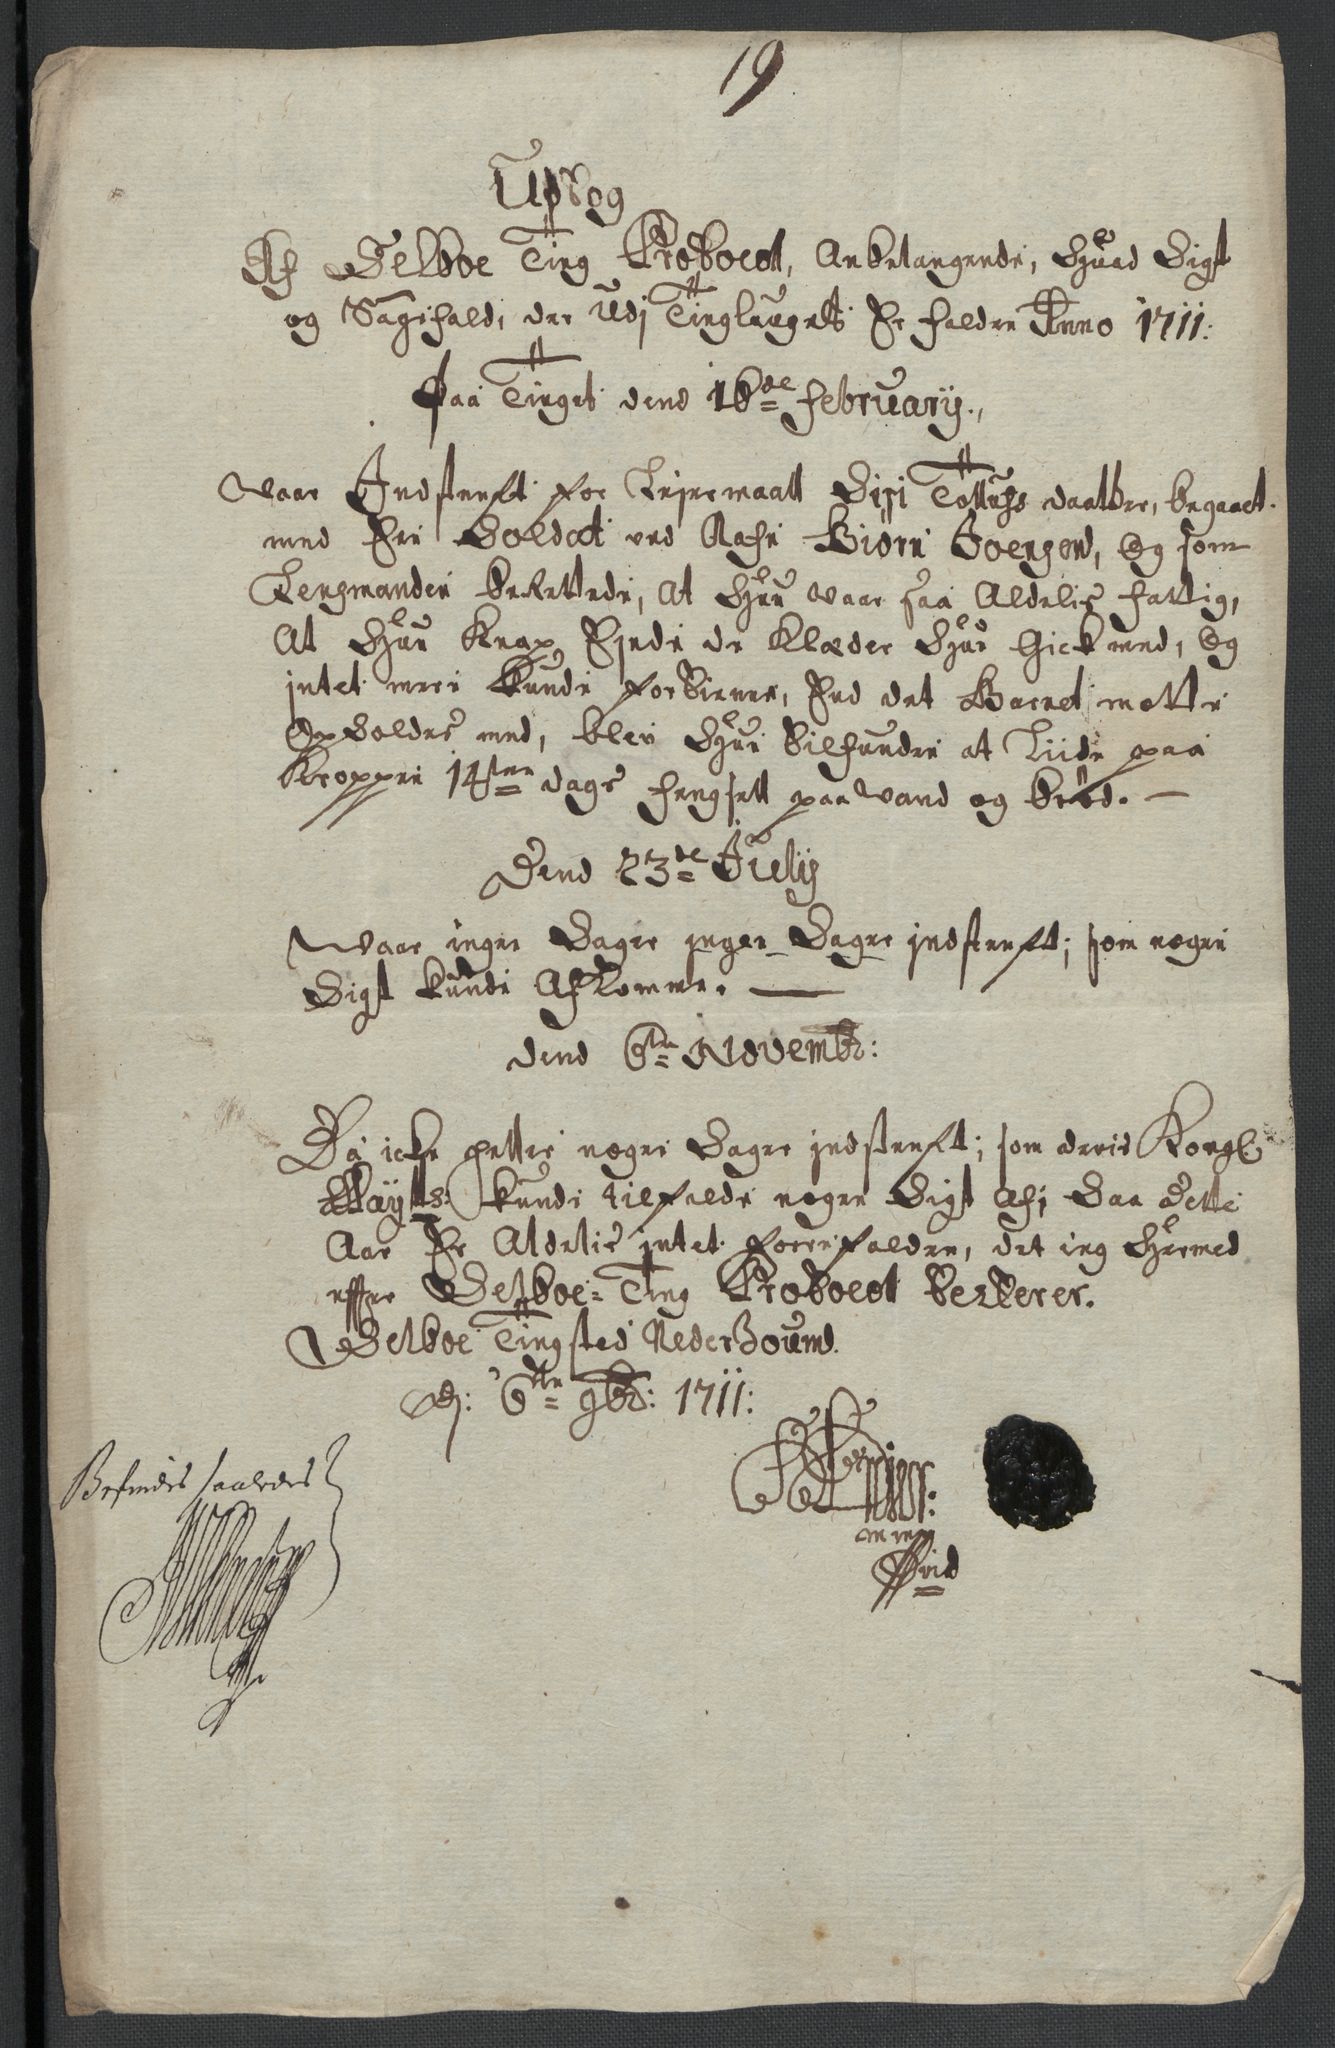 19
Udtog
Af Selboe Ting Protocol, Anbelangende, hvad Sigt
og Sagefald, der udj Tinglauget Er falden Anno 1711:
Paa Tinget dend 16de February.,
Vaar Indstenft for Leyermaall Sisi daatter, begaaet
med En Soldat ved Nafn Biörn Joensen, Og som
Lensmanden berettede, At hun vaar saa Aldelis fattig,
At hun knap Eyede de Klæder hun Gick med, Og
intet mere kunde fortienne, End det Barnet motte
Opholdes med, blev hun tilfunden at Liide paa
Kroppen 14ten dags fengsell paa Vand og bröd. —
Dend 23de July
Waar ingen Sager ingen Sager indstenft; som nogen
Sigt kunde Afkomme. —
dend 6te Novembr:
Da icke heller nogen Sager indstenft; som deris Kongl
Mayts: kunde tilfalde nogen Sigt Af; Saa dette
Aar Er Aldelis intet forrefalden, det ieg hermed
effter Selboe Ting Protocol
Selboe Tingsted
D: 6te 9br: 1711:
Befindes saaledes